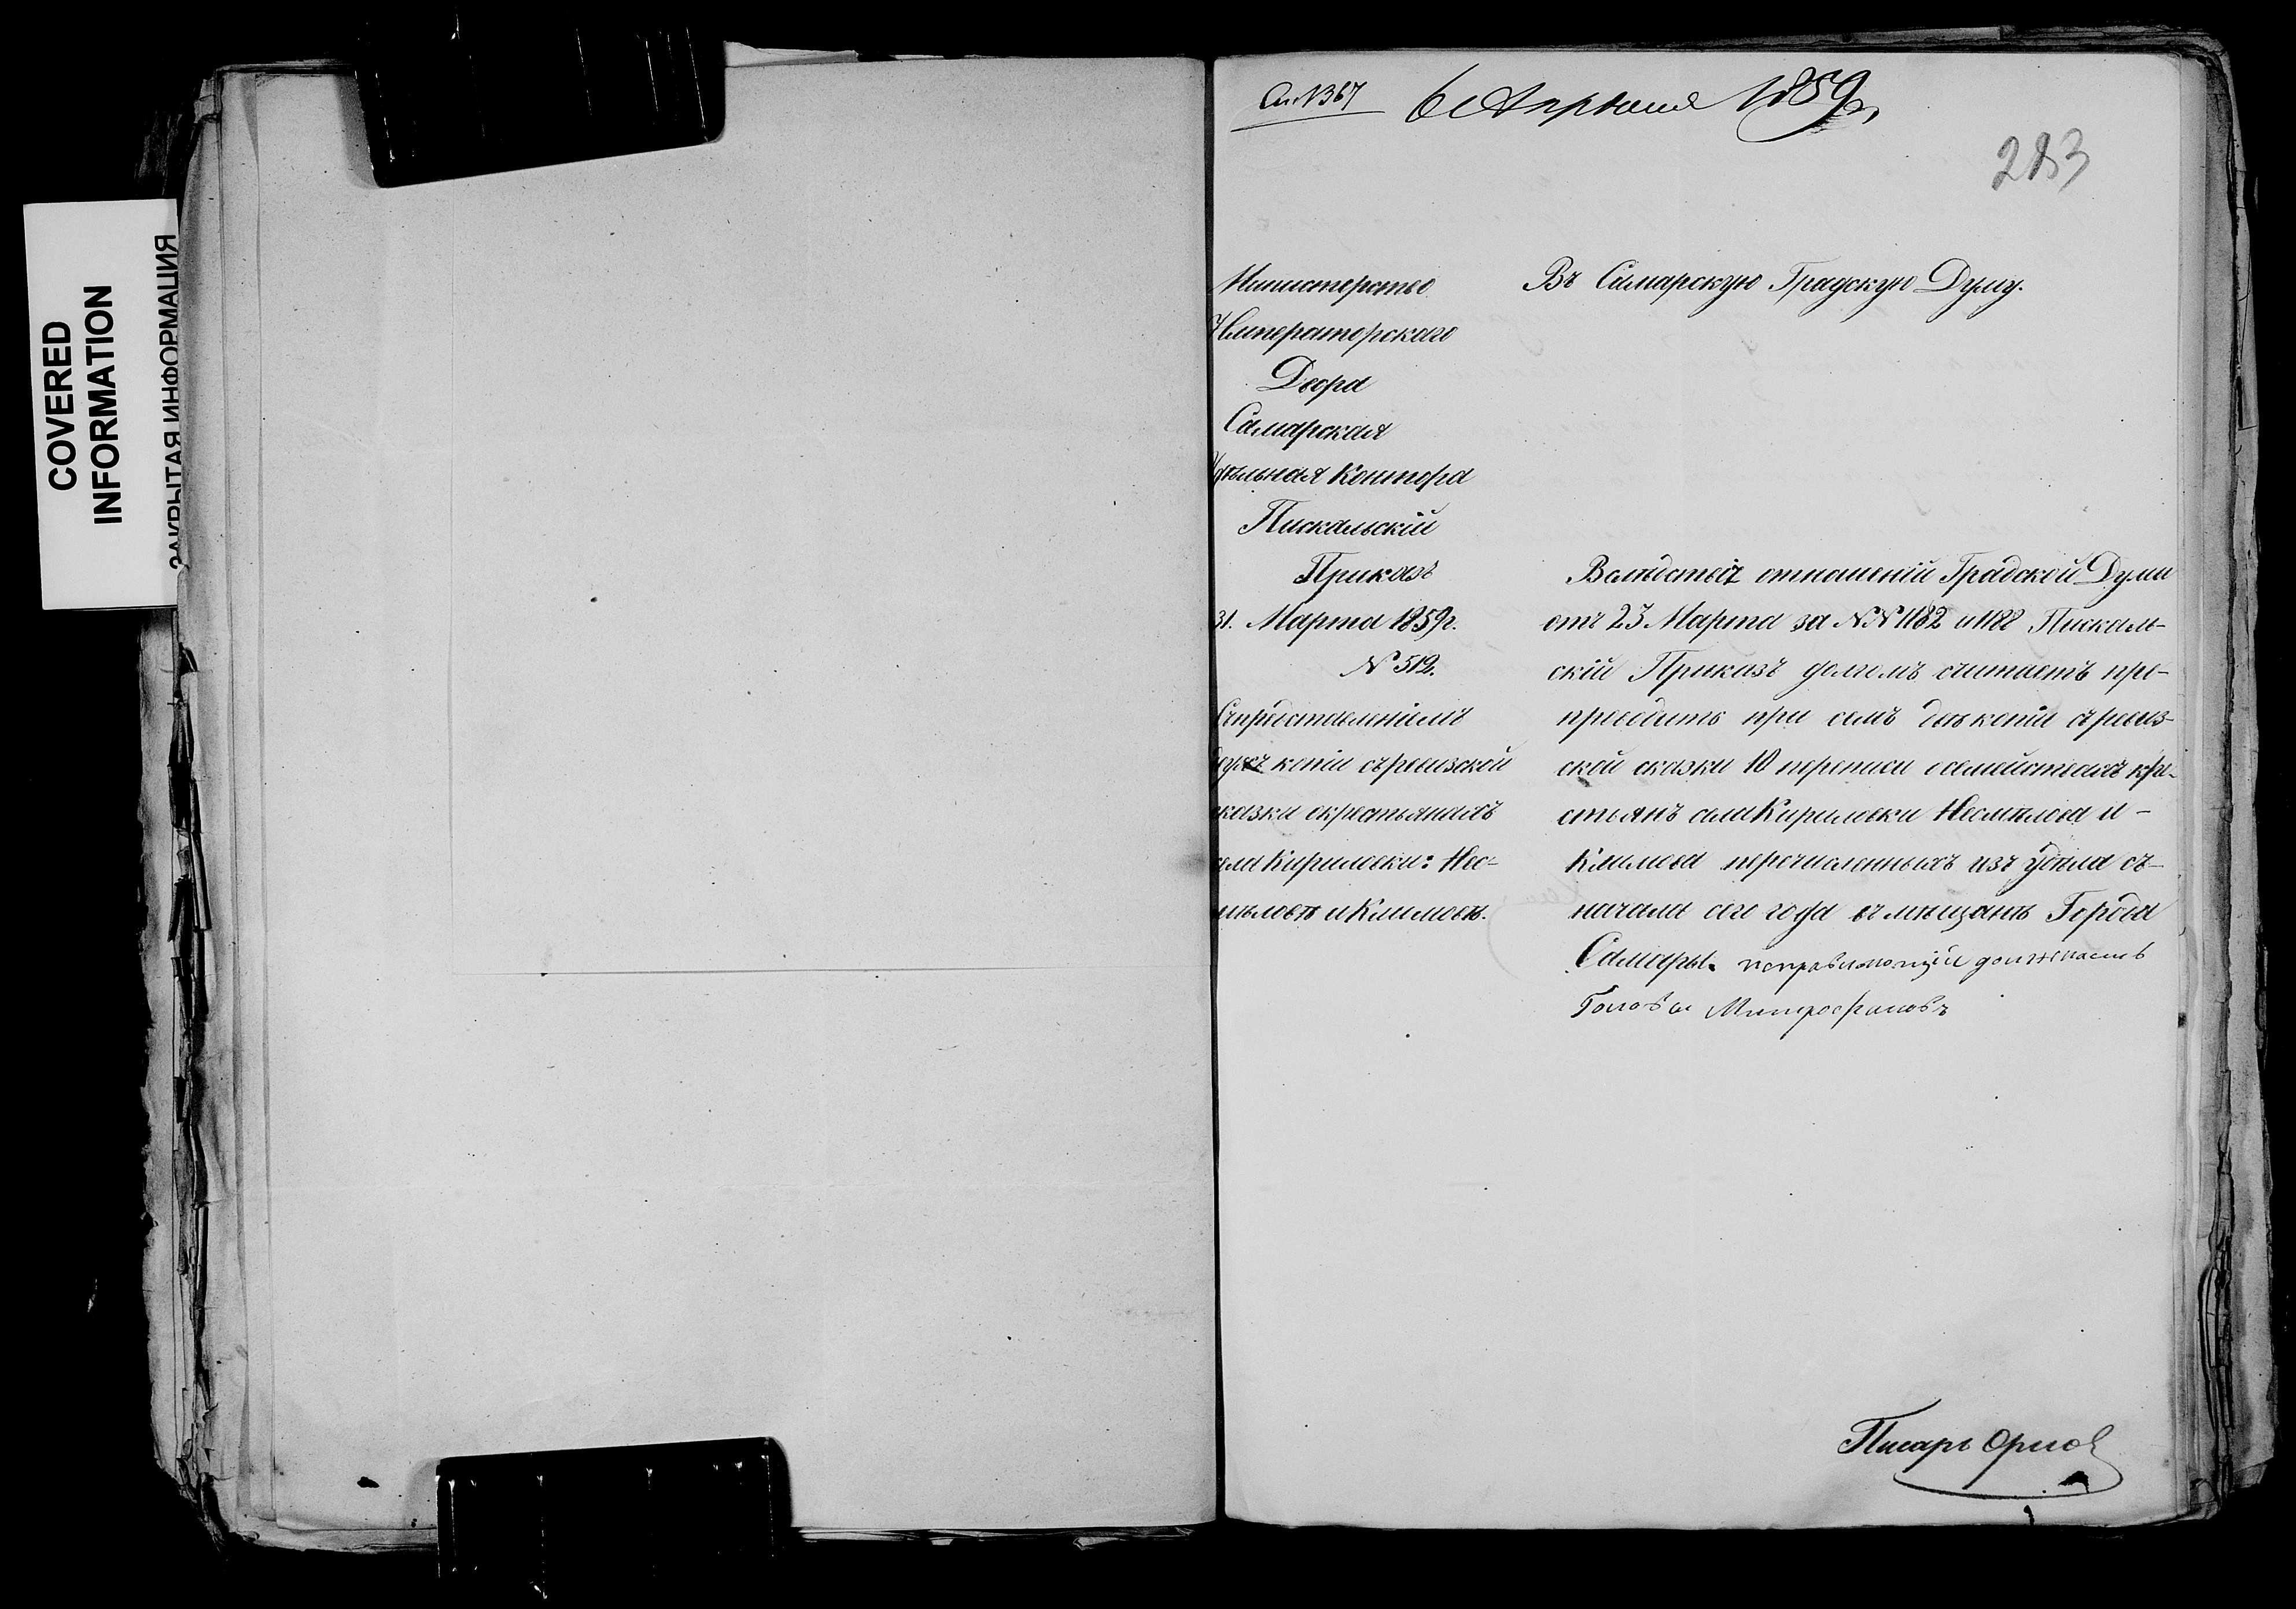 COVERED
INFORMATION
ЗАКРЫТАЯ ИНФОРМАЦИЯ
6 Апреля 1859 г.
283
Министерство
Императорскаго
Двора
Самарская
Удѣльная Контора
Пискальскій
Приказъ
31. Марта 1859 г.
№ 512.
Съ представленіемъ
двухъ копіи съ ревизской
сказки о крестьянахъ
села Кириловки: Нес-
мѣловѣ и Климовѣ.
Въ Самарскую Градскую Думу.
Вслѣдствіе отношеній Градской Думы
отъ 23 Марта за №№ 1182 и 1188 Пискаль-
скій Приказъ долгомъ считаетъ пре-
проводить при семъ двѣ копіи съ ревиз-
ской сказки 10 переписи о семействахъ кре-
стьянъ села Кириловки Несмѣлова и -
Климова перечисленныхъ изъ удѣла съ -
начала сего года въ мѣщанѣ Города
Самары. исправляющій должность
Головы Митрофановъ
Писарь Орлов